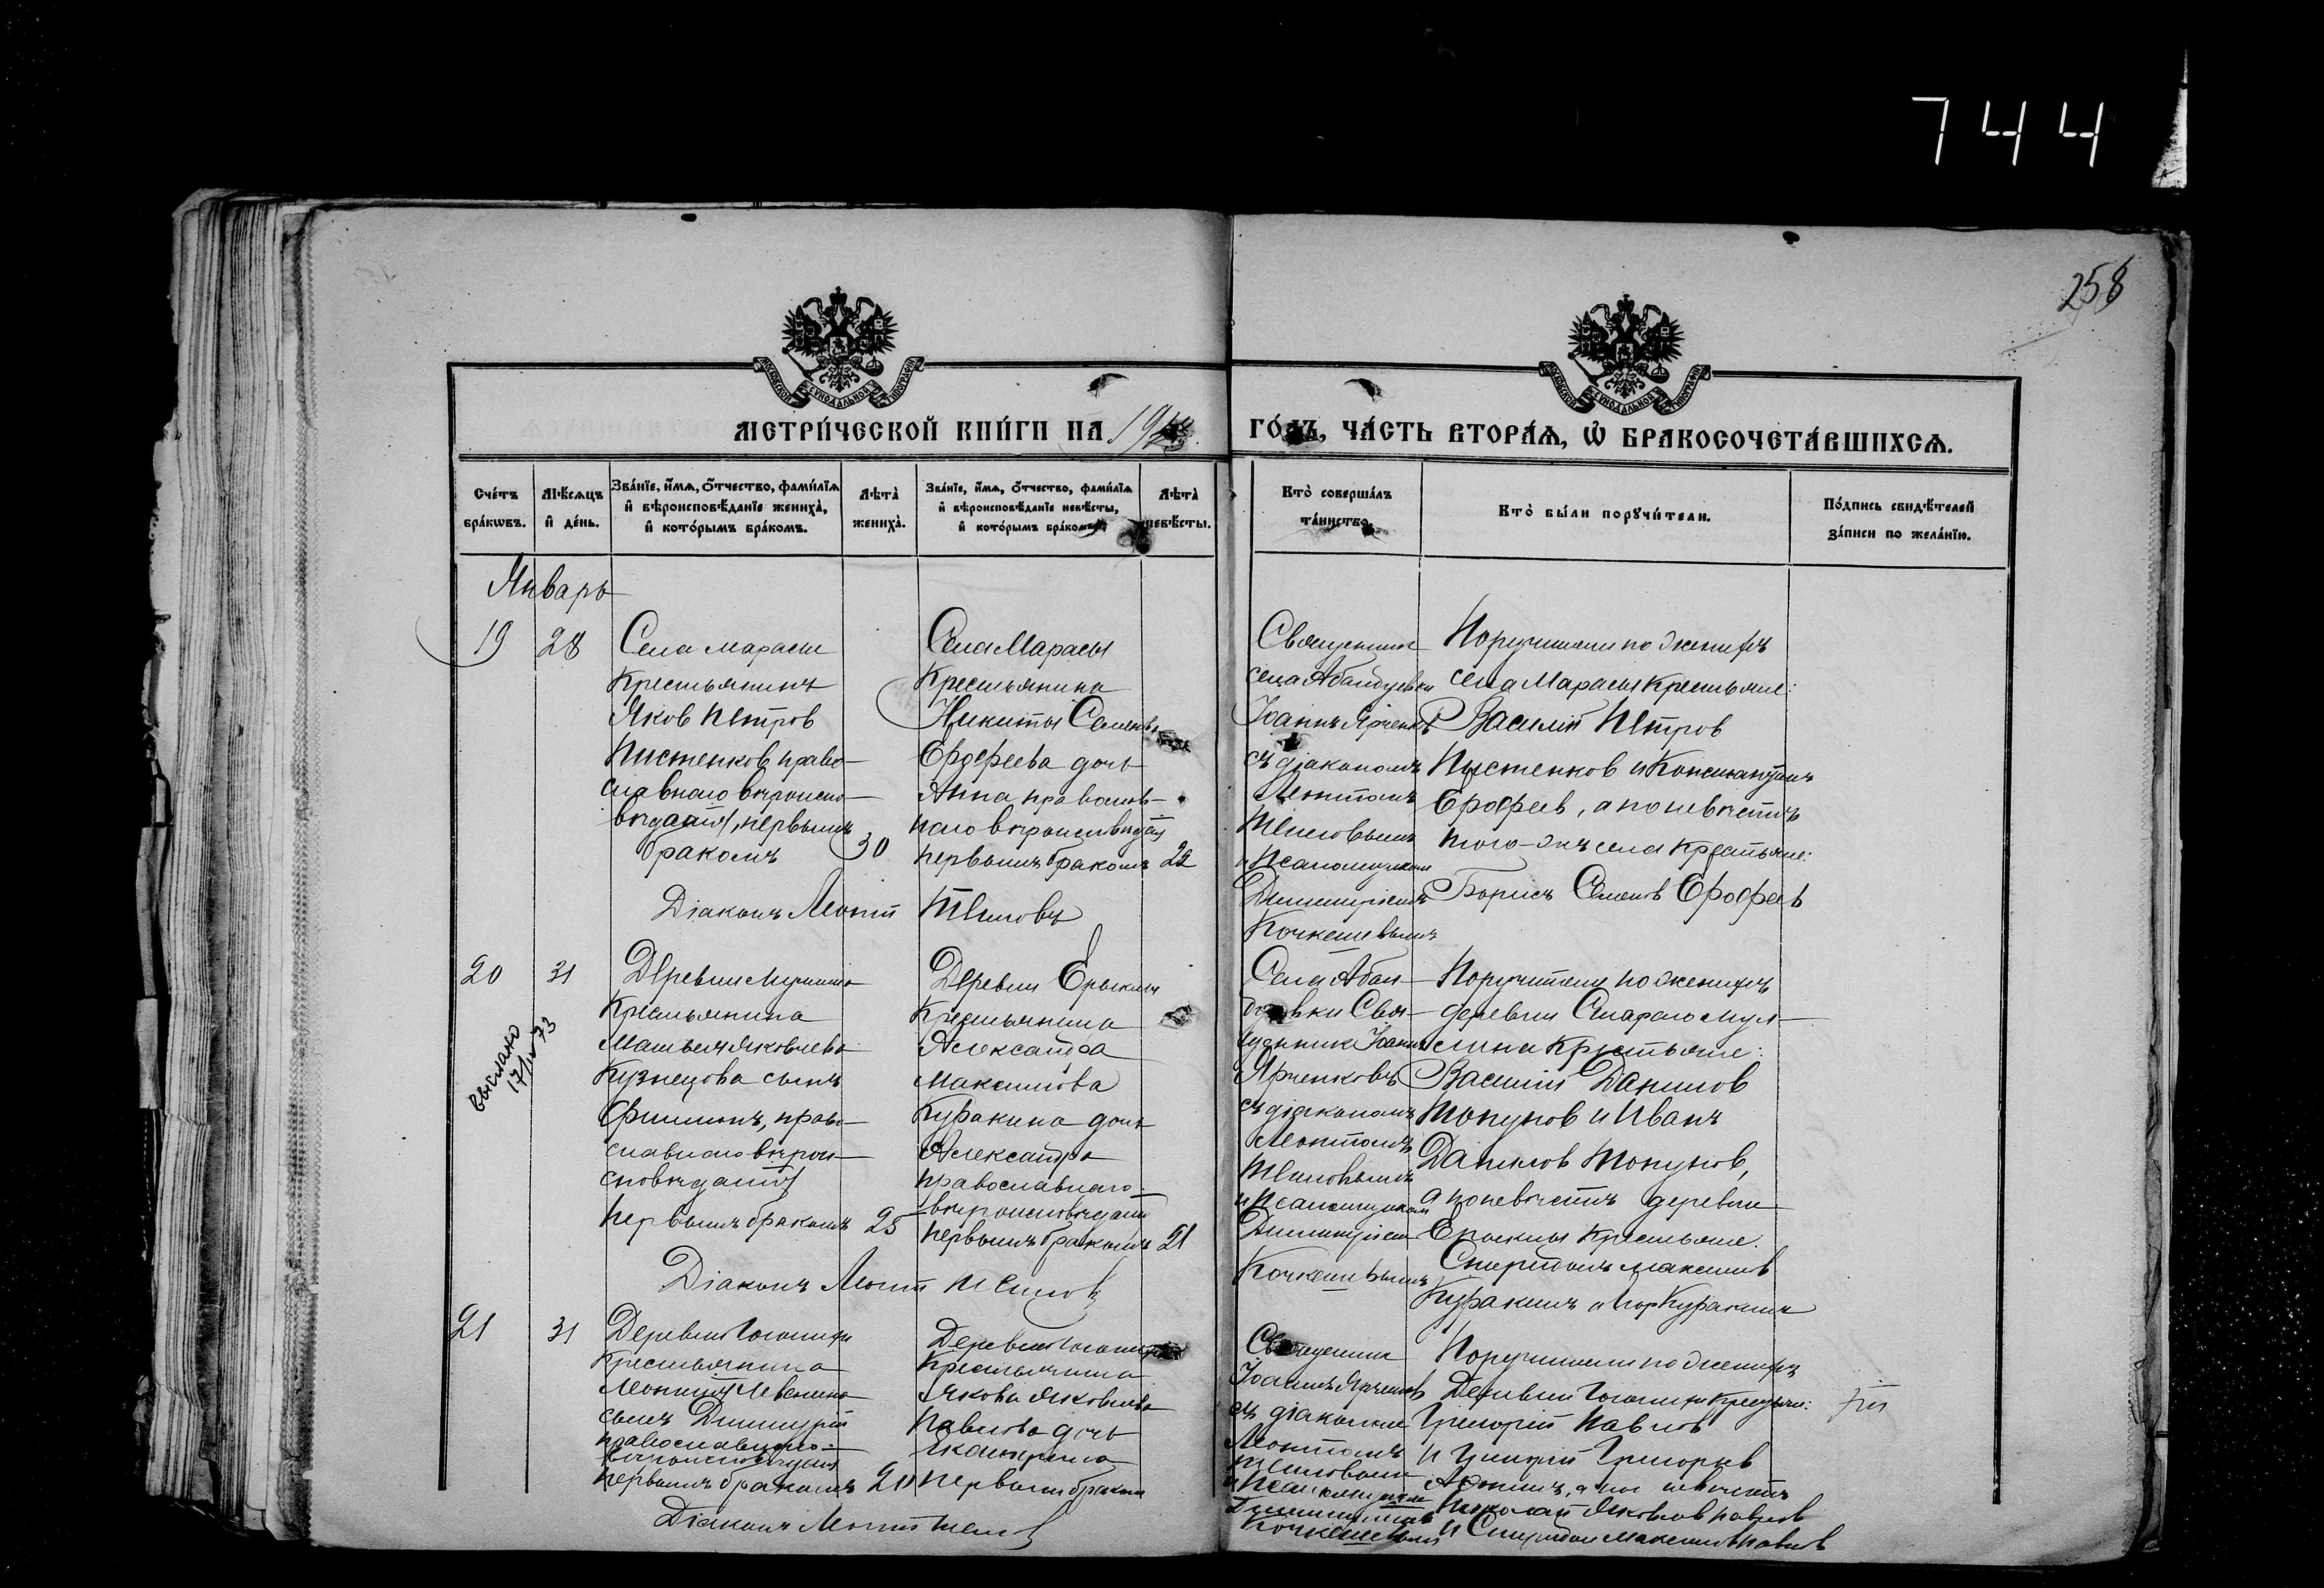 744
258
МОСКОВСКОЙ СѴНОДАЛЬНОЙ ТИПОГРАФІИ
МОСКОВСКОЙ СѴНОДАЛЬНОЙ ТИПОГРАФІИ
МЕТРИ́ЧЕСКОЙ КНИ́ГИ НА 19
ГО́ДЪ, ЧА́СТЬ ВТОРА́Ѧ, Ѽ БРАКОСОЧЕТА́ВШИХСѦ.
Сче́тъ бра́кѡвъ.
Мѣ́сѧцъ и҆ де́нь.
Зва́нїе, и҆́мѧ, ѻ҆́тчество, фами́лїѧ и҆ вѣроисповѣ́данїе жениха̀, и҆ кото́рымъ бра́комъ.
Лѣта̀ жениха̀.
Зва́нїе, и҆́мѧ, ѻ҆́тчество, фами́лїѧ и҆ вѣроисповѣ́данїе невѣ́сты, и҆ кото́рымъ бра́комъ.
Лѣта̀ невѣ́сты.
Кто̀ соверша́лъ та́инство.
Кто̀ бы́ли порꙋчи́тели.
По́дпись свидѣ́телей за́писи по жела́нїю.
Январь
19
28
Села Марасы
Крестьянинъ
Яков Петров
Пистенков право-
славнаго вѣроиспо-
вѣданія, первымъ
бракомъ
30
Села Марасы
Крестьянина
Никиты Семенова
Ерофеева дочь
Анна православ-
наго вѣроисповѣданія
первымъ бракомъ
22
Священник
села Абалдуевки
Іоаннъ Ярченковъ
съ діакономъ
Леонтіемъ
Теиловымъ
и Псаломщикомъ
Димитріемъ
Кочкешевымъ
Поручители по женихѣ
села Марасы крестьяне:
Василій Петров
Пыстенков и Константинъ
Ерофеев, а по невѣстѣ
того-же села крестьяне:
Борисъ Семенов Ерофеев
Діаконъ Леонтій Теиловъ
20
31
выслано
73
Деревни
Крестьянина
Матвея Яковлева
Кузнецова сынъ
Филиппъ, право-
славнаго вѣрои-
сповѣданія
первымъ бракомъ
25
Деревни Ерыклы
Крестьянина
Александра
Максимова
Куракина дочь
Александра
православнаго
вѣроисповѣданія
первымъ бракомъ
21
Села Абал-
дуевки Свя-
щенник Іоаннъ
Ярченковъ
съ діакономъ
Леонтіемъ
Теиловымъ
и Псаломщиком
Димитріем
Кочкешевымъ
Поручители по женихѣ
деревни Стараго Мул-
лина крестьяне:
Василій Данилов
Топунов и Иванъ
Данилов Топунов,
а по невѣстѣ деревни
Ерыклы Крестьяне.
Спиридонъ Максимов
Куракинъ и Куракинъ
Діаконъ Леонтій Теиловъ
21
31
Деревни
Крестьянина
Леонтія
сынъ Димитрій
православнаго
вѣроисповѣданія
первымъ бракомъ
20
Деревни
Крестьянина
Якова Яковлева
Павлова дочь
Екатерина
первымъ браком
Священник
Іоаннъ Ярченков
съ діаконом
Леонтіемъ
Теиловым
и Псаломщиком
Димитріем
Кочкешевым
Поручители по женихѣ
Деревни
Григорій Павлов
и Григорьев
а по невѣстѣ
Николай Яковлев Павлов
и Спиридон Максимов Павлов
Діаконъ Леонтій Теилов